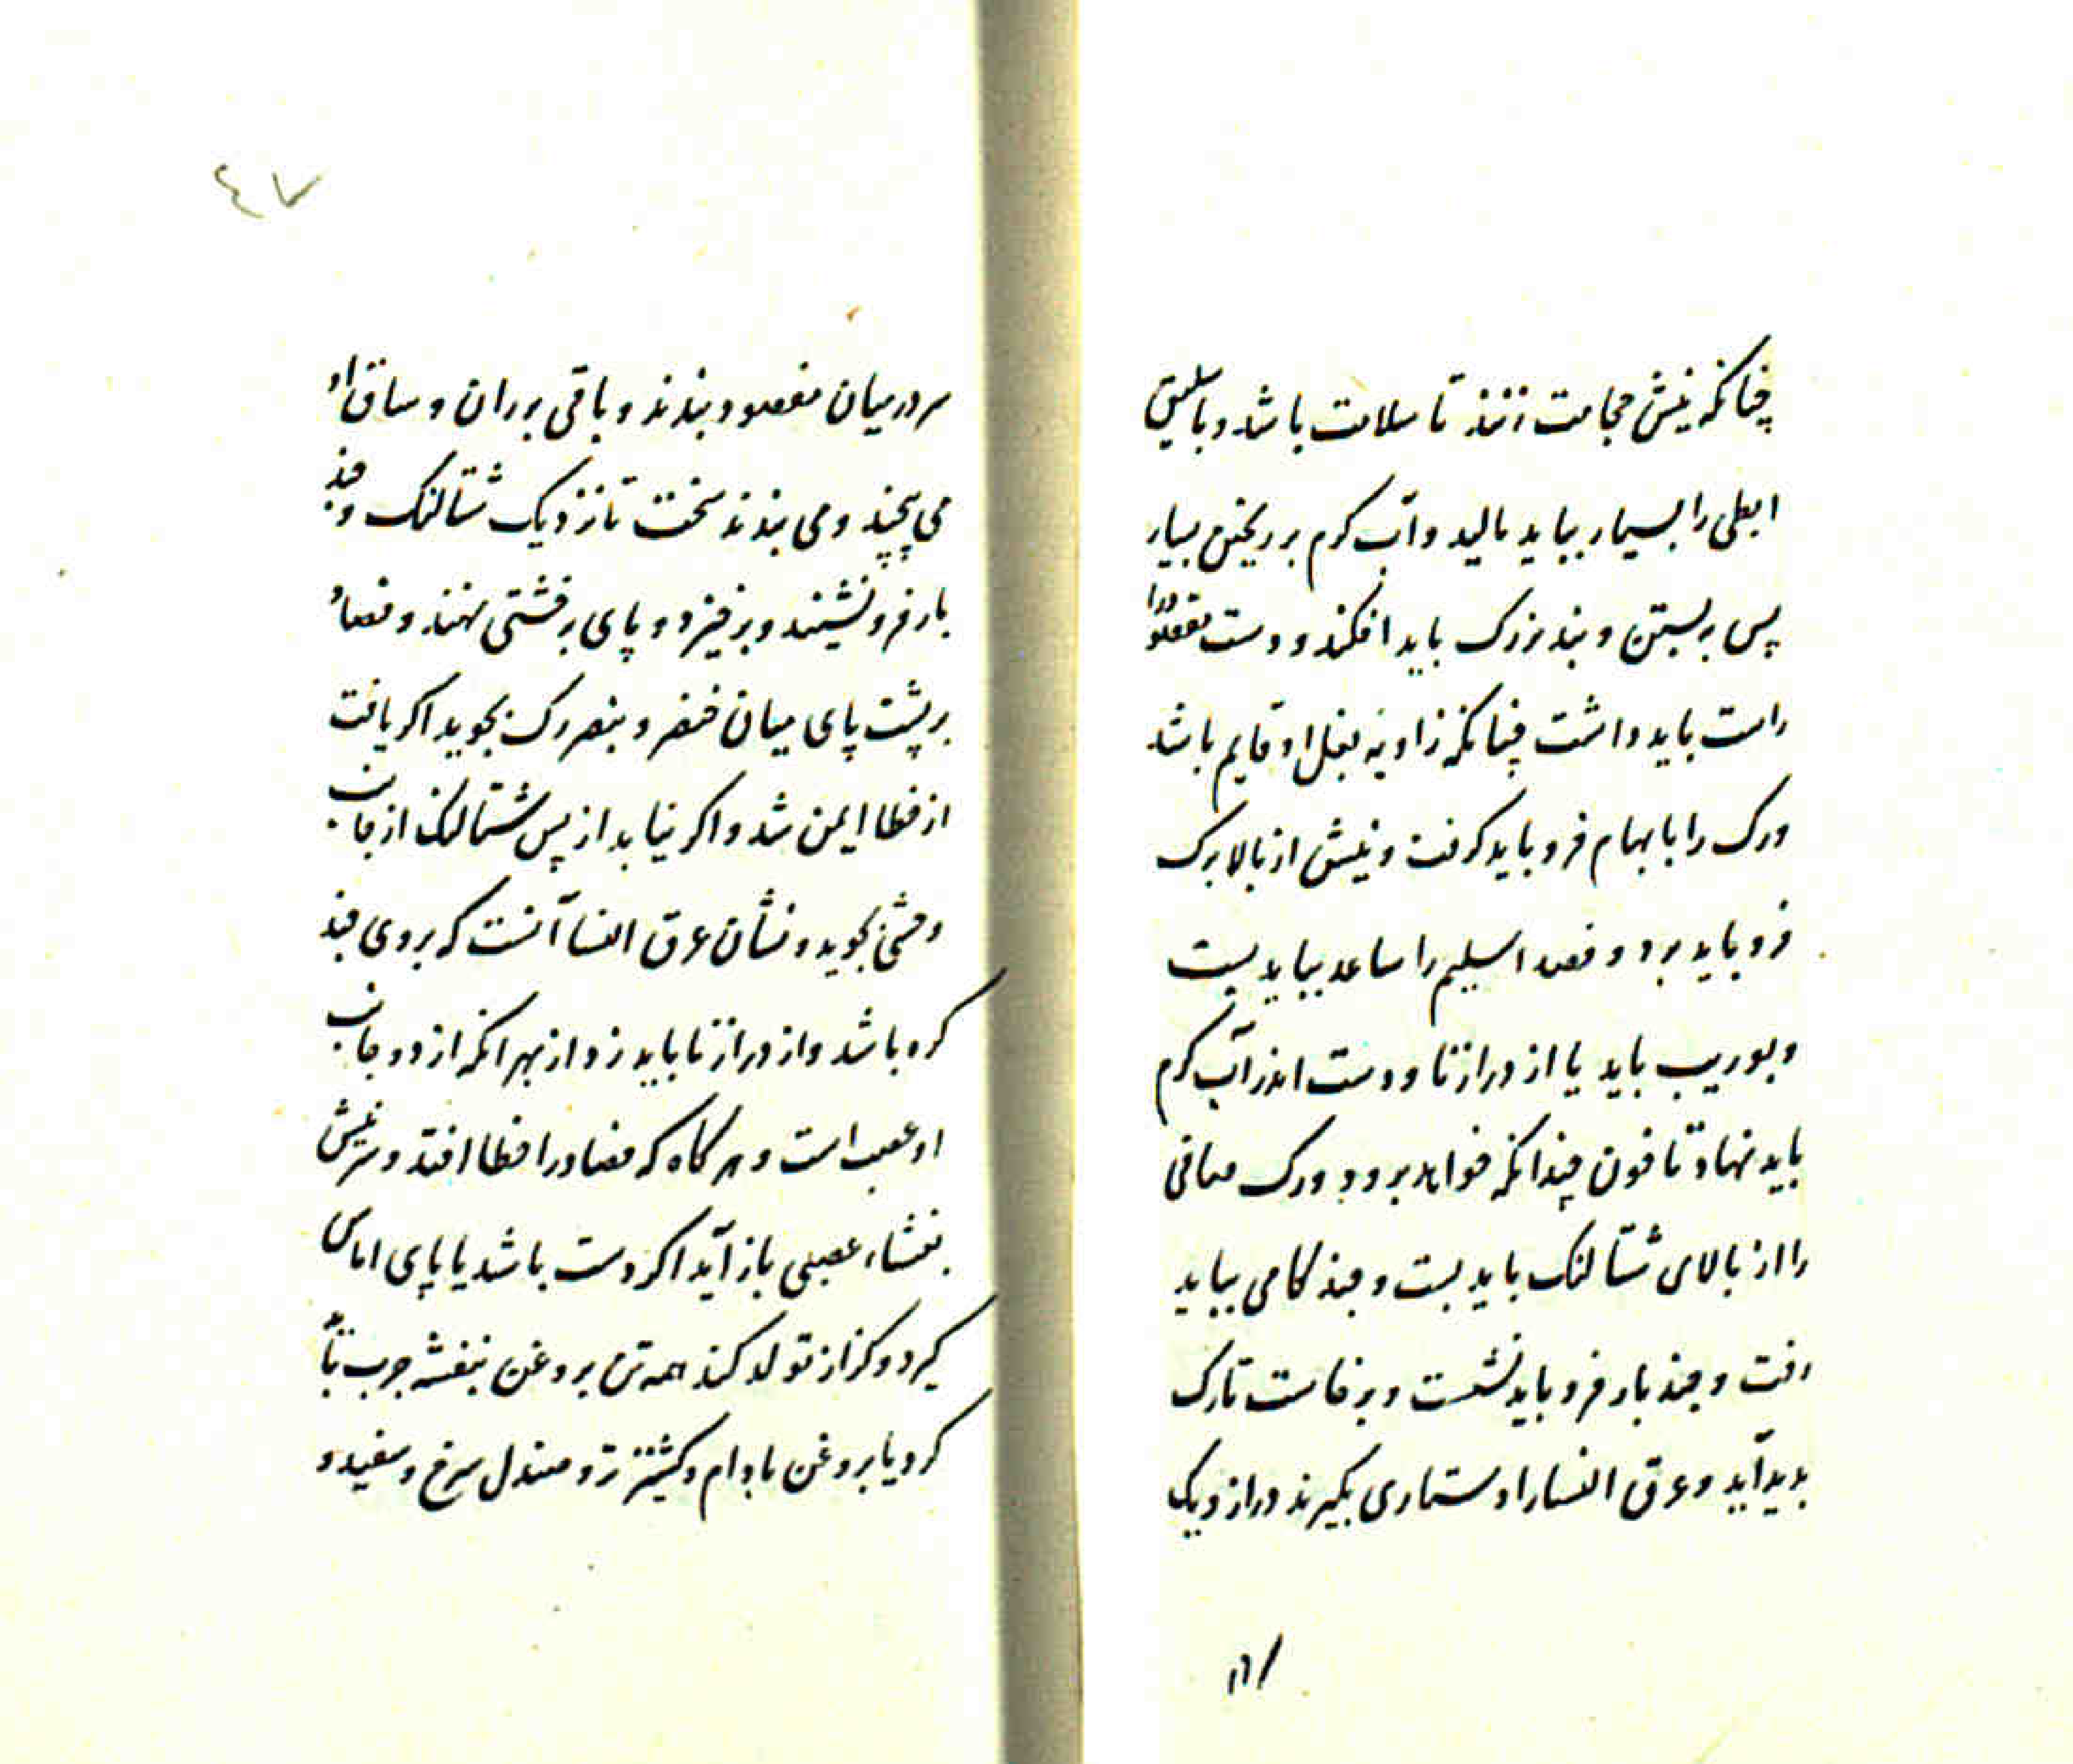 چنانکه نیش حجامت زنند تا سلامت باشد و باسلیق
ابطی را بسیار بباید مالید و آب کرم بر ریختن بسیار
پس بر بستن و بند بزرک باید افکند و دست مفصود را
راست باید داشت چنانکه زاویه بغل او قایم باشد
ورک را بابهام فرو باید کرفت و نیش از بالا برک
فرو باید برد و فصد اسیلیم را ساعد بباید بست
و بوریب باید یا از درازنا و دست اندر آب کرم
باید نهاد تا خون چندانکه خواهد برود ورک صافن
را از بالای شتالنک باید بست و چند کامی بباید
رفت و چند بار فرو باید نشست و برخاست تا رک
پدید آید و عرق النسا را دستاری بکیرند دراز و یک
٤٧
سر در میان مفصود بندند و باقی بر ران و ساق او
می پیچند و می بندند سخت تا نزدیک شتالنک و چند
بار فرو نشیند و برخیزد و پای بر خشتی نهند و فصاد
بر پشت پای میان خنصر و بنصر رک بجوید اکر یافت
از خطا ایمن شد و اکر نیابد از پس شتالنک از جانب
وحشی بجوید و نشان عرق النسا آنست که بر وی چند
کره باشد و از درازنا باید زد از بهر انکه از دو جانب
او عصب است و هر کاه که فصاد را خطا افتد و سر نیش
بغشاء عصبی باز آید اکر دست باشد یا پای اماس
کیرد و کزاز تولد کند همه تن بروغن بنفشه چرب باید
کرد یا بروغن بادام و کشنیز تر و صندل سرخ و سفید و